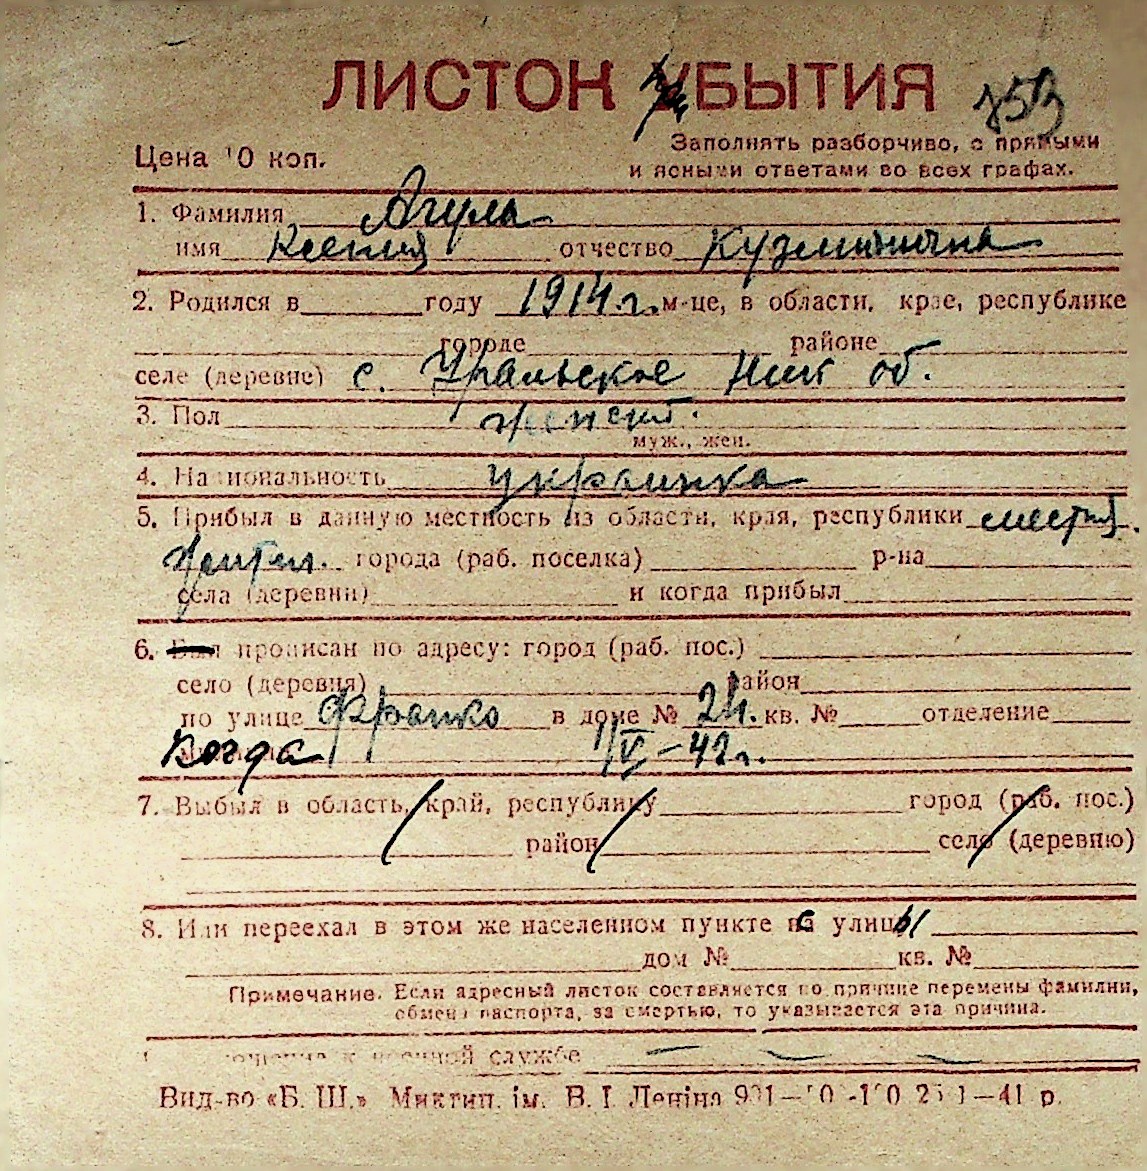 ЛИСТОК УБЫТИЯ
Цена 10 коп.
Заполнять разборчиво, с прямыми
и ясными ответами во всех графах.
1. Фамилия Агула
имя Ксения отчество Кузминична
2. Родился в году 1914 г. м-це, в области, крае, республике
городе районе
селе (деревне) с. Уральское Ник об.
3. Пол женск.
муж., жен.
4. Национальность украинка
5. Прибыл в данную местность из области, края, республики местн.
жител. города (раб. поселка) р-на
села (деревни) и когда прибыл
6. Был прописан по адресу: город (раб. пос.)
село (деревня) район
по улице Франко в доме № 24. кв. № отделение
когда 1/V-42г.
7. Выбыл в область, край, республику город (раб. пос.)
район село (деревню)
8. Или переехал в этом же населенном пункте с улицы
дом № кв. №
Примечание. Если адресный листок составляется по причине перемены фамилии,
обмена паспорта, за смертью, то указывается эта причина.
к военной службе
Вид-во «Б. Ш.» Миктип. ім. В. І. Леніна —41 р.